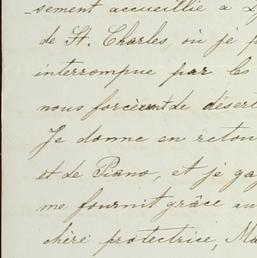 -sement accueillie à
de St. Charles, où je p
interrompue par les
nous forcèrent de désert
Je donne en retou
et de Piano, et je ga
me fournit grâce au
chère protectrice, Ma